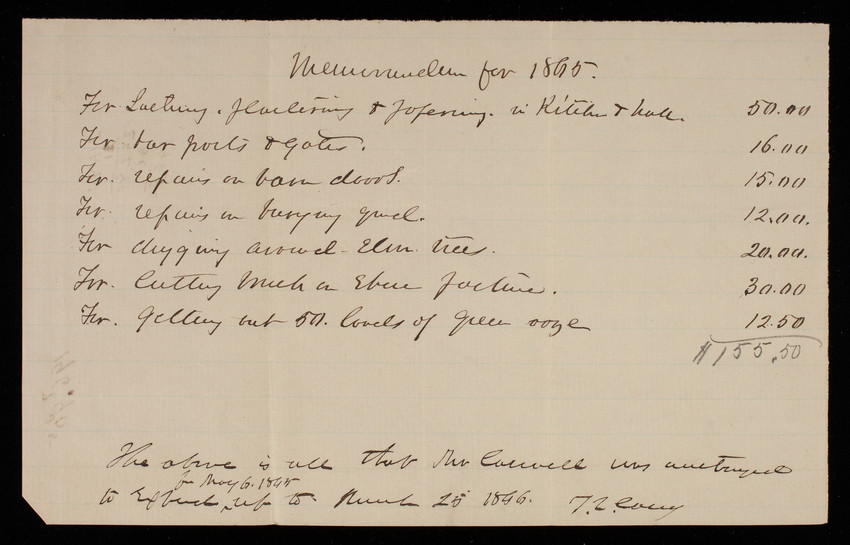 Memorandum for 1895.
For Lathing, plastering & papering in Kitchen & hall. 50.00
For bar posts & gates. 16.00
For repairs on barn doors. 15.00
For repairs on burying grnd. 12.00.
For digging around Elm trees. 20.00.
For Cutting brush on Eben pasture. 30.00
For getting out 50. loads of green 12.50
$155.50
The above is all that Mr Caswell was authorized
fr May 6. 1895
to Expend, up to March 25 1896. T. L. Casey